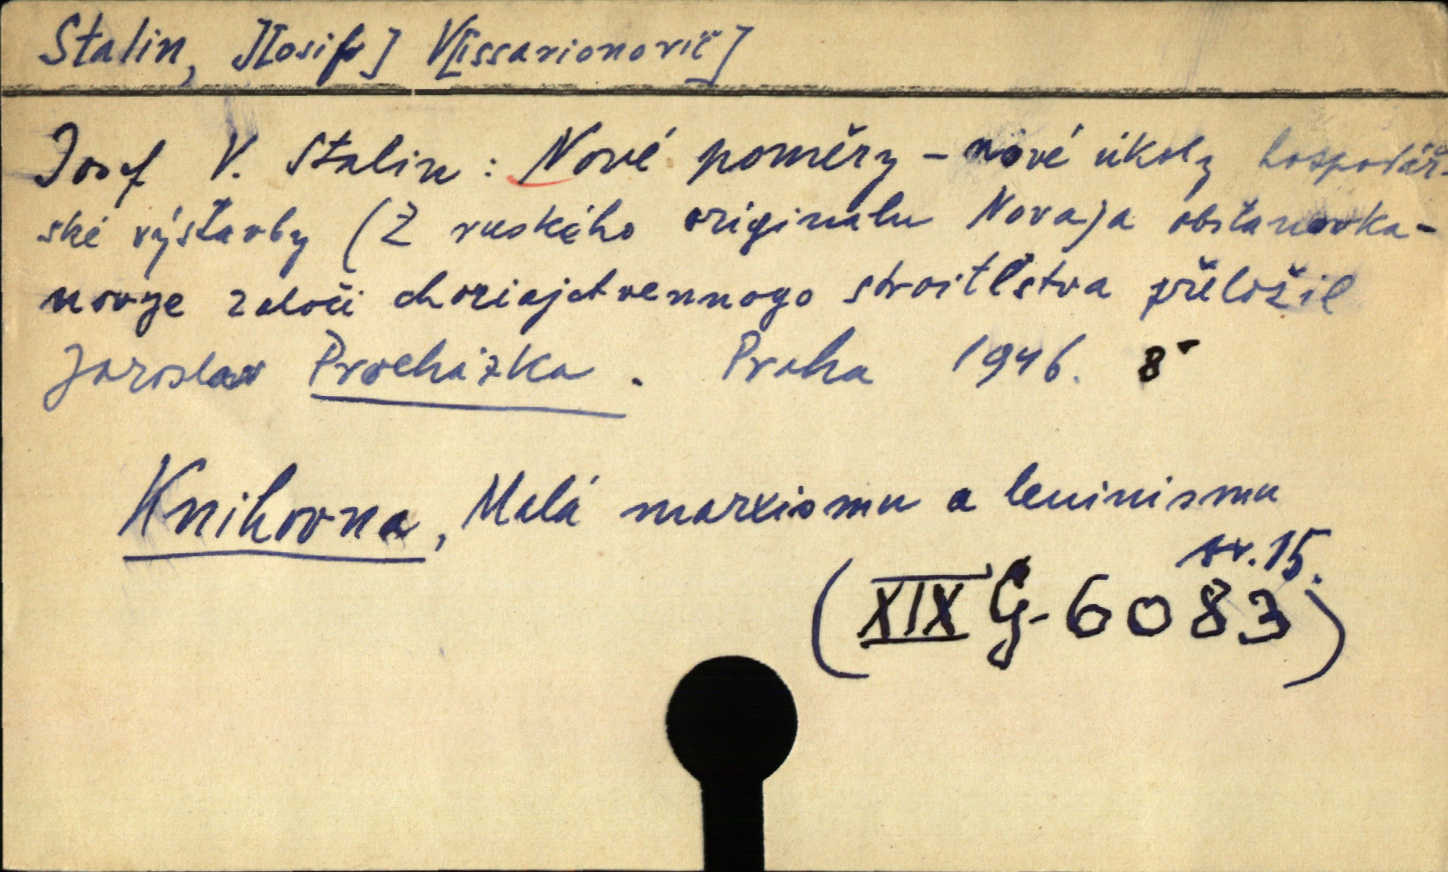 Stalin, J[osif] V[issarionovič]
Josef V. Stalin: Nové poměry - nové úkoly hospodář-
ské výstavby (Z ruského originálu Novaja obstanovka-
novye zadači choziajstvennogo stroitělstva přeložil
Jaroslav Procházka. Praha 1946. 8°
Knihovna, Malá marxismu a leninismu
sv. 15.
(XIX G-6083)